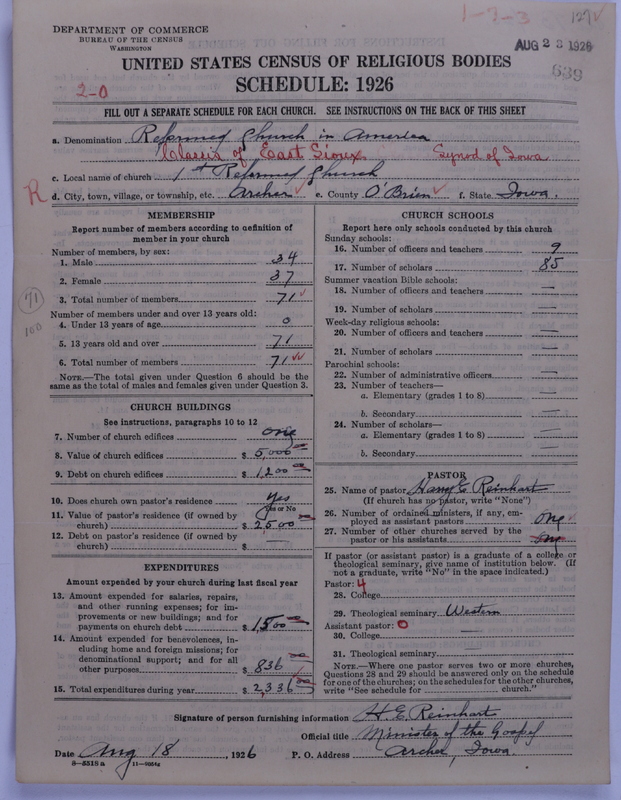 1-7-3 127V
DEPARTMENT OF COMMERCE
BUREAU OF THE CENSUS
WASHINGTON
AUG 23 1926
639
UNITED STATES CENSUS OF RELIGIOUS BODIES
SCHEDULE: 1926
2-0
FILL OUT A SEPARATE SCHEDULE FOR EACH CHURCH. SEE INSTRUCTIONS ON THE BACK OF THIS SHEET
a. Denomination Reformed Church in America
Classis of East Sioux Synod of Iowa
c. Local name of church 1st Reformed Church
R d. City, town, village, or township, etc. Archer e. County O'Brien f. State Iowa.
MEMBERSHIP
Report number of members according to definition of
member in your church
Number of members, by sex:
1. Male 34
2. Female 37
3. Total number of members 71
Number of members under and over 13 years old:
4. Under 13 years of age 0
5. 13 years old and over 71
6. Total number of members 71
NOTE.—The total given under Question 6 should be the
same as the total of males and females given under Question 3.
71
100
CHURCH BUILDINGS
See instructions, paragraphs 10 to 12
7. Number of church edifices one
8. Value of church edifices $ 5,000
9. Debt on church edifices $ 1,200
10. Does church own pastor's residence Yes
Yes or No
11. Value of pastor's residence (if owned by
church) $ 2,500
12. Debt on pastor's residence (if owned by
church) $ —
EXPENDITURES
Amount expended by your church during last fiscal year
13. Amount expended for salaries, repairs,
and other running expenses; for im-
provements or new buildings; and for
payments on church debt $ 1500
14. Amount expended for benevolences, in-
cluding home and foreign missions; for
denominational support; and for all
other purposes $ 836
15. Total expenditures during year $ 2,336
CHURCH SCHOOLS
Report here only schools conducted by this church
Sunday schools:
16. Number of officers and teachers 9
17. Number of scholars 85
Summer vacation Bible schools:
18. Number of officers and teachers —
19. Number of scholars —
Week-day religious schools:
20. Number of officers and teachers —
21. Number of scholars —
Parochial schools:
22. Number of administrative officers —
23. Number of teachers—
a. Elementary (grades 1 to 8) —
b. Secondary —
24. Number of scholars—
a. Elementary (grades 1 to 8) —
b. Secondary —
PASTOR
25. Name of pastor Harry E. Reinhart
(If church has no pastor, write "None")
26. Number of ordained ministers, if any, em-
ployed as assistant pastors one
27. Number of other churches served by the
pastor or his assistants one
If pastor (or assistant pastor) is a graduate of a college or
theological seminary, give name of institution below. (If
not a graduate, write "No" in the space indicated.)
Pastor: 4
28. College
29. Theological seminary Western
Assistant pastor: 0
30. College —
31. Theological seminary —
NOTE.—Where one pastor serves two or more churches,
Questions 28 and 29 should be answered only on the schedule
for one of the churches; on the schedules for the other churches,
write "See schedule for church."
Signature of person furnishing information H. E. Reinhart
Official title Minister of the Gospel
Date Aug 18, 1926 P. O. Address Archer, Iowa
8—5318 a